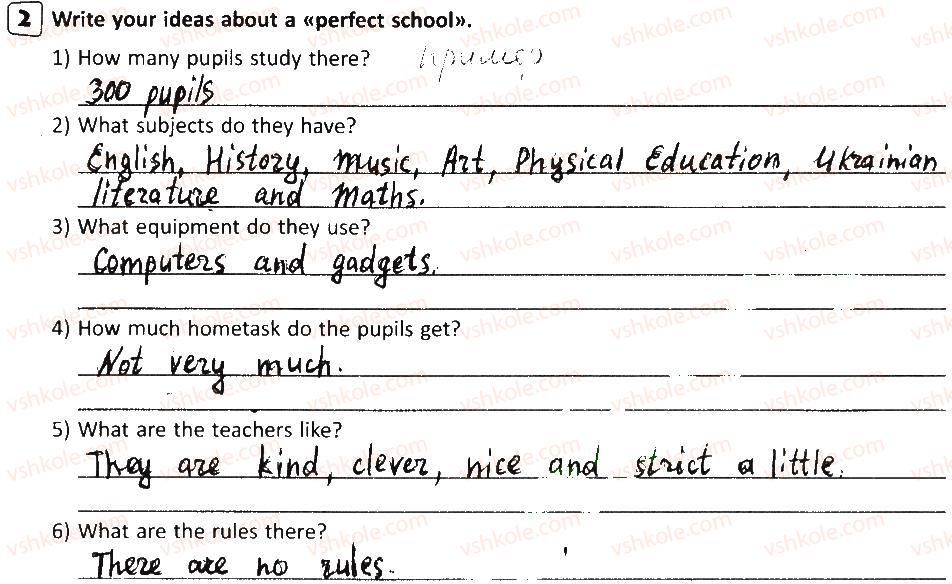 2 Write your ideas about a «perfect school».
1) How many pupils study there?
300 pupils
2) What subjects do they have?
English, History, music, Art, Physical Education, Ukrainian
literature and Maths.
3) What equipment do they use?
Computers and gadgets.
4) How much hometask do the pupils get?
Not very much.
5) What are the teachers like?
They are kind, clever, nice and strict a little.
6) What are the rules there?
There are no rules.
vshkole.com